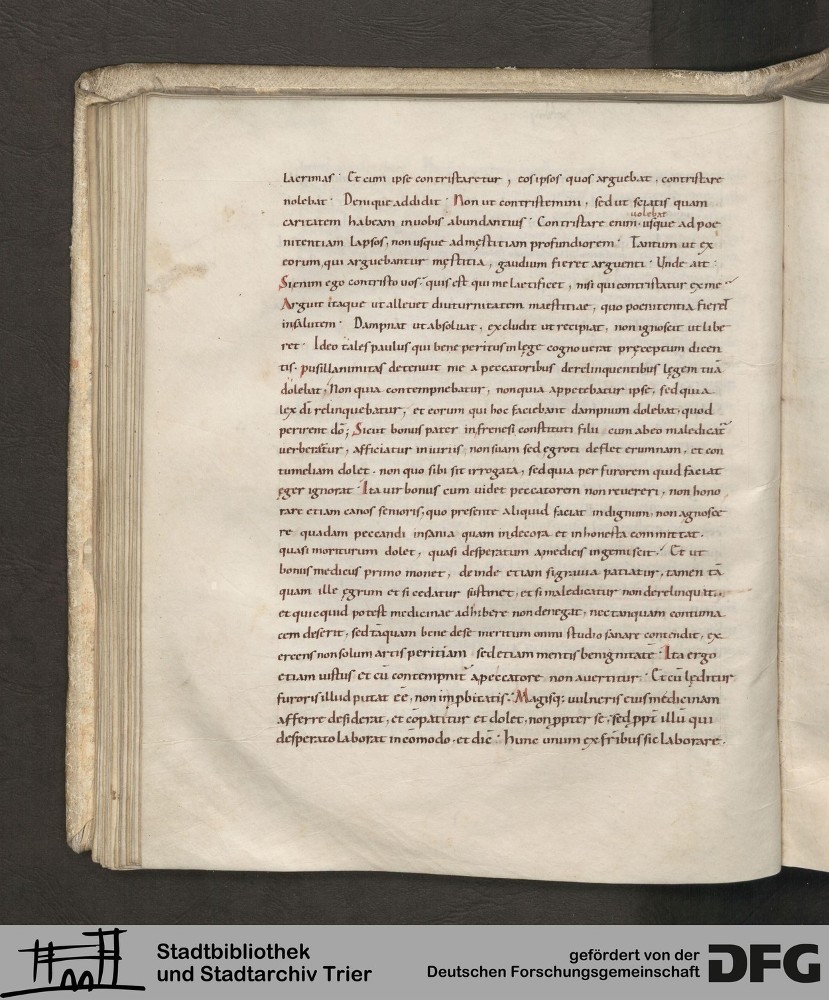 lacrimas · Et cum ipse contristaretur , eos ipsos quos arguebat , contristare
nolebat · Denique addidit · Non ut contristemini , sed ut sciatis quam
caritatem habeam inuobis abundantius · Contristare enim uolebat usque ad poe
nitentiam lapsos, non usque admęstitiam profundiorem · Tantum ut ex
eorum, qui arguebantur męstitia , gaudium fieret arguenti · Unde ait ·
Si enim ego contristo uos · quis est qui me laetificet , nisi qui contristatur ex me ·
Arguit itaque ut alleuet diuturnitatem maestitiae , quo poenitentia fieret
insalutem · Dampnat ut absoluat , excludit ut recipiat , non ignoscit ut libe
ret · Ideo tales paulus qui bene peritus in lege cognouerat pręceptum dicen
tis · pusillanimitas detenuit me a peccatoribus derelinquentibus lęgem tuā
dolebat · Non quia contempnebatur , non quia appetebatur ipse , sed quia
lex dī relinquebatur , et eorum qui hoc faciebant dampnum dolebat , quod
perirent dō ; Sicut bonus pater in frenesi constituti filii cum ab eo maledicat̄
uerberatur , afficiatur iniuriis , non suam sed ęgroti deflet erumnam , et con
tumeliam dolet . non quo sibi sit irrogata , sed quia per furorem quid faciat
ęger ignorat · Ita uir bonus cum uidet peccatorem non reuereri , non hono
rare etiam canos senioris, quo presente aliquid faciat indignum , non agnosce
re quadam peccandi insania quam indecora et inhonesta committat .
quasi moriturum dolet , quasi desperatum a medicis ingemiscit · Et ut
bonus medicus primo monet , deinde etiam si grauia patiatur , tamen tā
quam ille ęgrum etsi cedatur sustinet , etsi maledicatur non derelinquat ,
et quicquid potest medicinae adhibere non denegat , nec tanquam contuma
cem deserit , sed tāquam bene de se meritum omni studio sanare contendit , ex
ercens non solum artis peritiam sed etiam mentis benignitatē · Ita ergo
etiam iustus et cū contempnit̄ a peccatore non auertitur · Et cū lęditur
furoris illud putat eē , non inp̄bitatis · Magisq; uulneris eius medicinam
afferre desiderat , et cōpatitur et dolet , non ppter se , sed ppt̄ illū qui
desperato laborat incōmodo . et dic̄ · hunc unum ex fr̄ibus sic laborare .
Stadtbibliothek
und Stadtarchiv Trier
gefördert von der
Deutschen Forschungsgemeinschaft
DFG